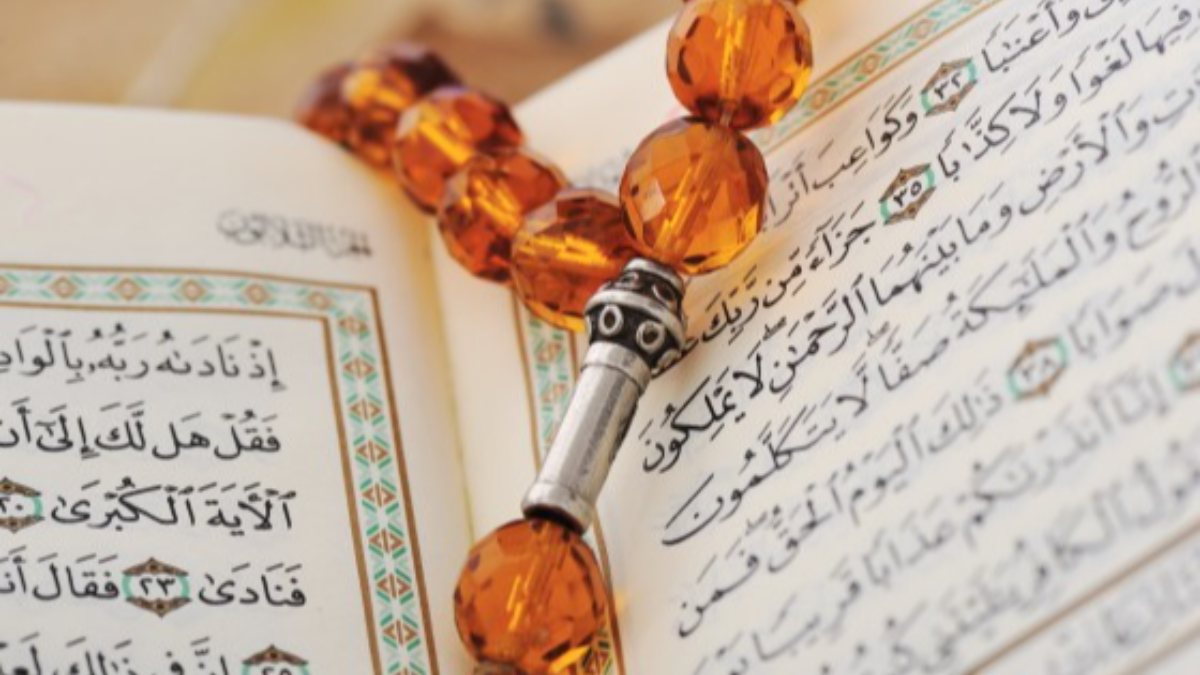 وَأَعْنَٰبًا ٣٢ وَكَوَاعِبَ
فِيهَا لَغْوًا وَلَا كِذَّٰبًا ٣٥ جَزَآءً مِّن رَّبِّكَ
وَٱلْأَرْضِ وَمَا بَيْنَهُمَا ٱلرَّحْمَٰنِ لَا يَمْلِكُونَ
ٱلرُّوحُ وَٱلْمَلَٰٓئِكَةُ صَفًّا لَّا يَتَكَلَّمُونَ
صَوَابًا ٣٨ ذَٰلِكَ ٱلْيَوْمُ ٱلْحَقُّ فَمَن
إِنَّآ أَنذَرْنَٰكُمْ عَذَابًا قَرِيبًا
ٱلْكَافِرُ يَٰلَيْتَنِى
الجزء الثلاثون
إِذْ نَادَىٰهُ رَبُّهُۥ بِٱلْوَادِ
فَقُلْ هَل لَّكَ إِلَىٰٓ أَن
ٱلْأَيَةَ ٱلْكُبْرَىٰ ٢٠
فَنَادَىٰ ٢٣ فَقَالَ
٢٥ إِنَّ فِى ذَٰلِكَ